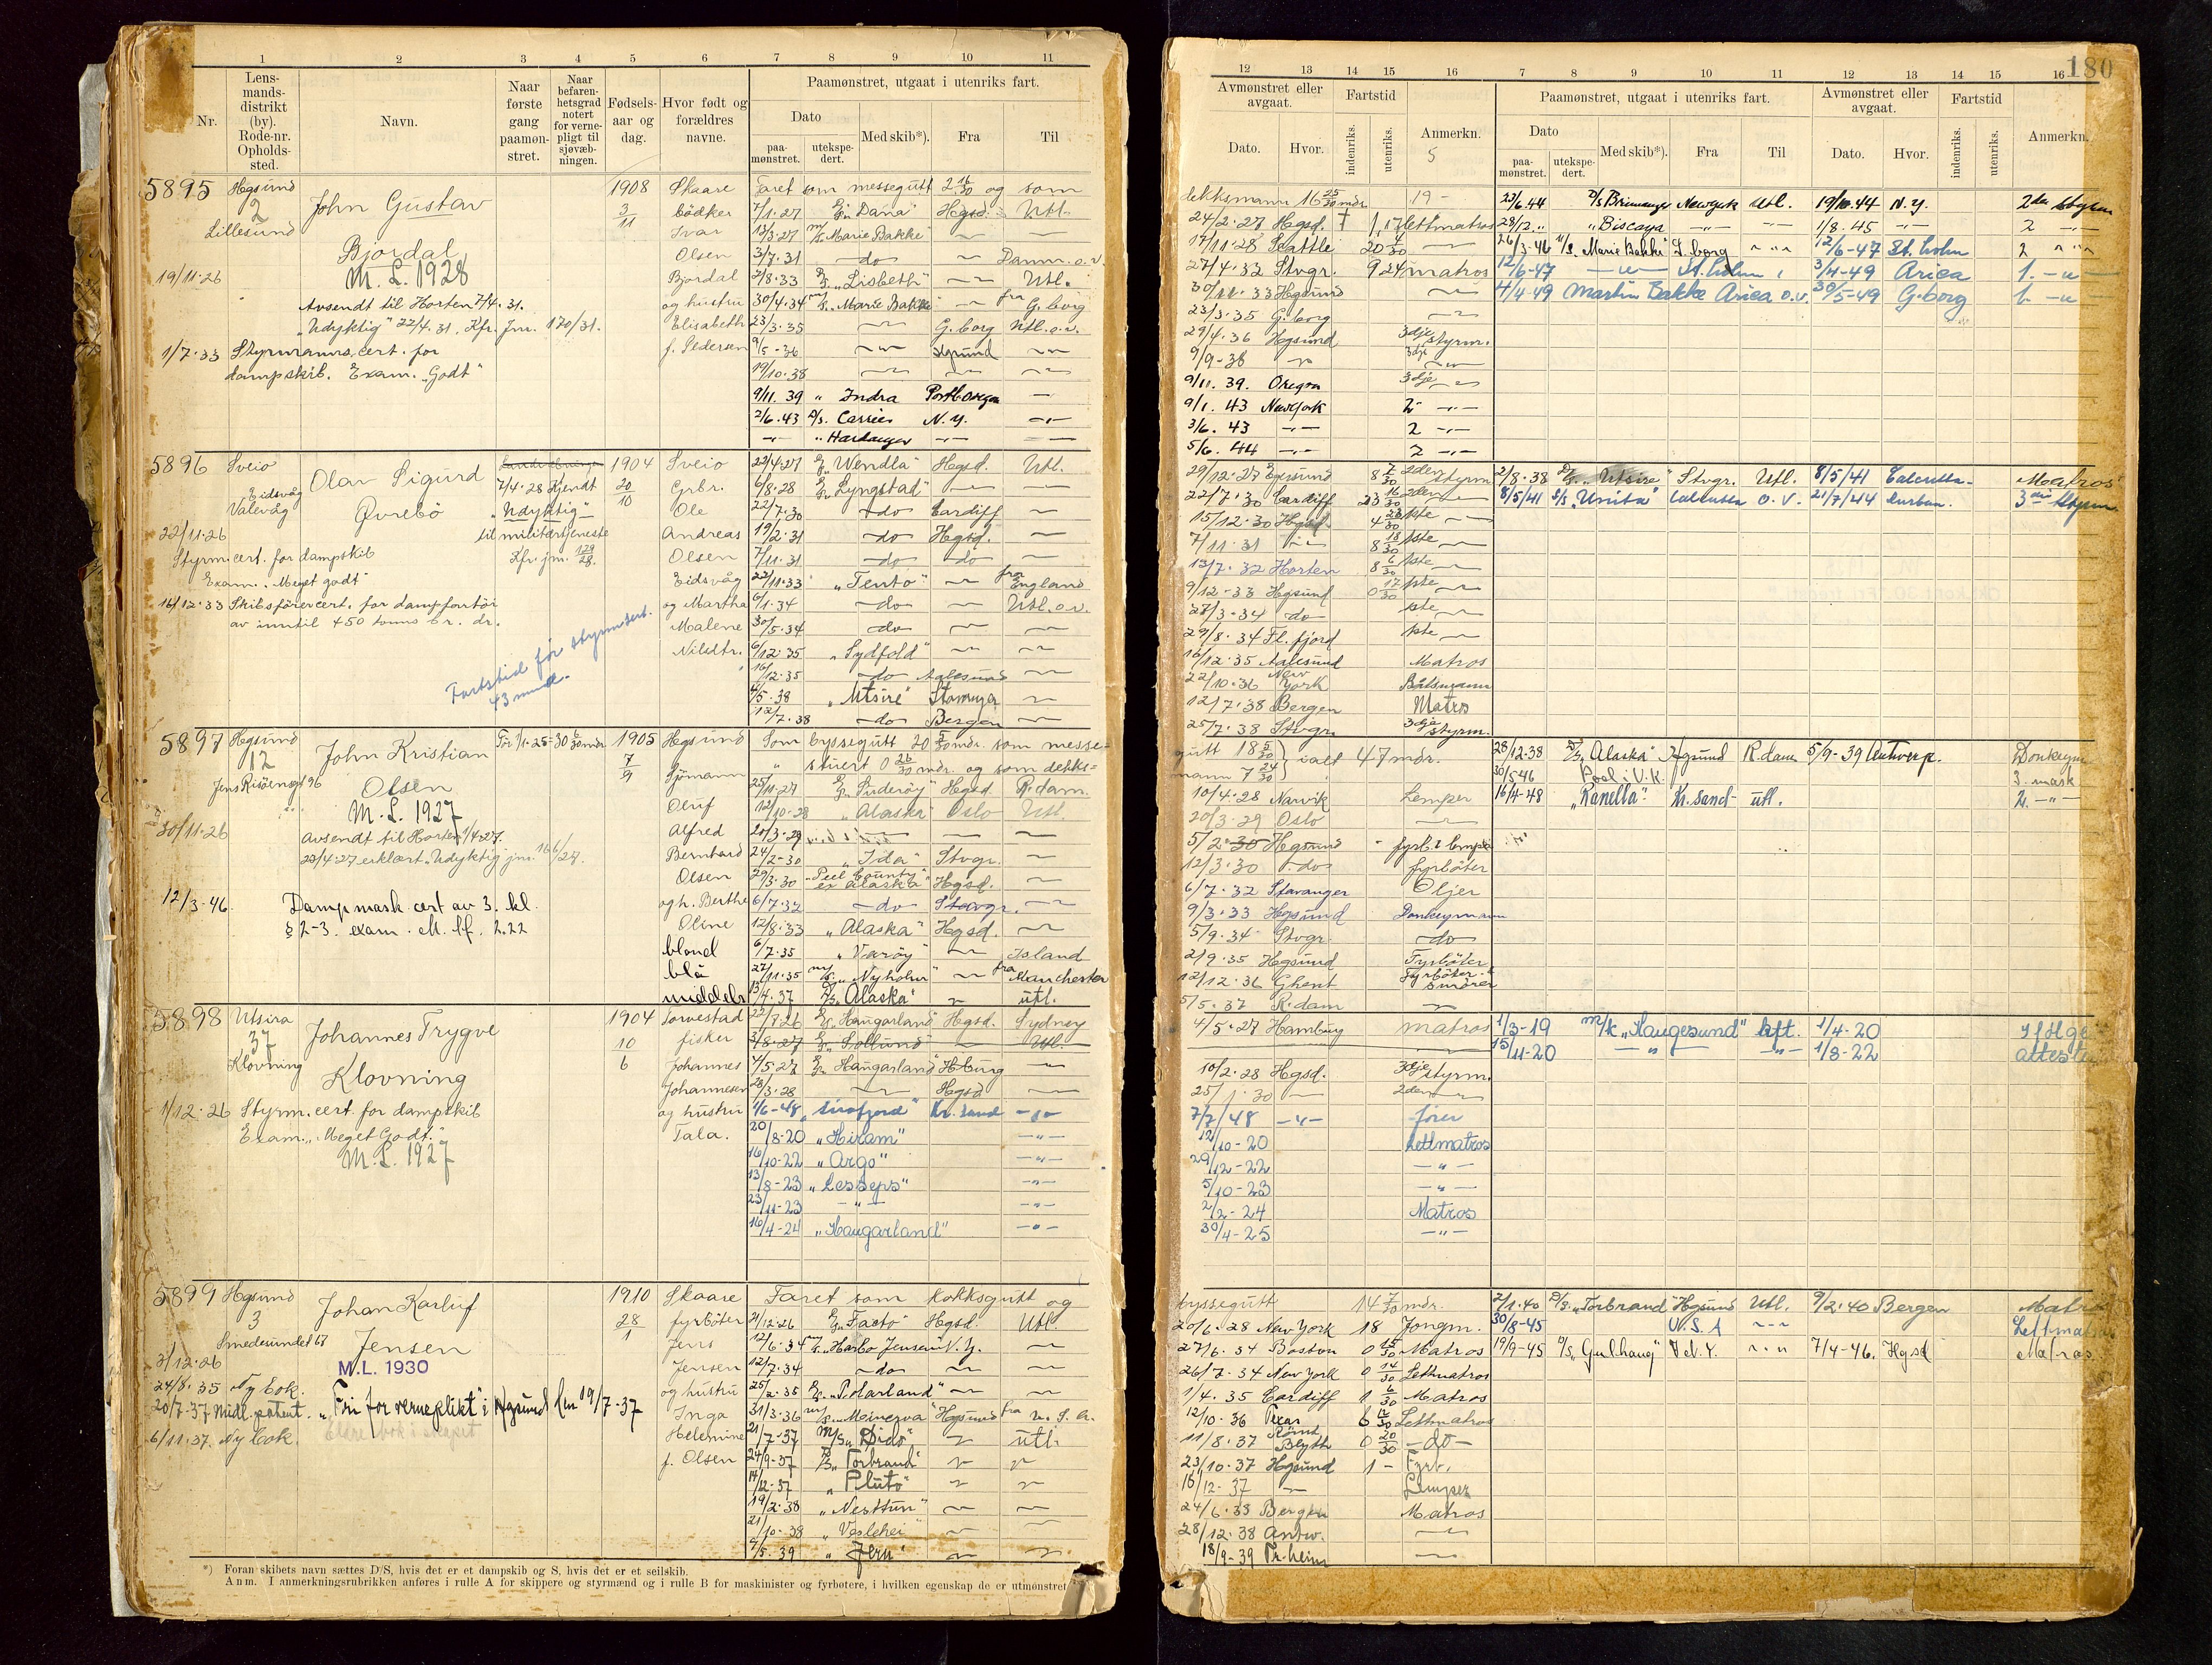 1 2 3 4 5 6 7 8 9 10 11
Nr.
Lens-
mands-
distrikt
(by).
Rode-nr.
Opholds-
sted.
Navn.
Naar
første
gang
paamøn-
stret.
Naar
befaren-
hetsgrad
notert
for verne-
pligt til
sjøvæb-
ningen.
Fødsels-
aar og
dag.
Hvor født og
forældres
navne.
Paamønstret, utgaat i utenriks fart.
Dato
paa-
mønstret.
utekspe-
dert.
Med skib*).
Fra
Til
5895 Hgsund
2
Lillesund
John Gustav
Bjordal
M.L. 1928
19/11-26
Avsendt til Horten 7/4.31.
"Udyktig" 22/4.31. Kfr. Jnr. 170/31.
1/7-33 Styrmannscert. for
dampskib. Exam. "Godt"
1908
3/11
Skaare
bödker
Ivar
Olsen
Bjordal
og hustru
Elisabeth
f. Pedersen
Faret som messegutt 2 16/30 og som
7/1.27 "Dana" Hgsd. Utl.
13/3.27 M/S "Marie Bakke" — —
3/7.31 — do — — Danm. o.v.
2/8.33 "Lisbeth" — Utl.
30/4.34 "Marie Bakke" — fra G.borg
23/3.35 — G.borg Utl. o.v.
9/5-36 — Hgsund —
19/10.38 — — —
9/11.39 " Indra Portl. Oregon —
2/6.43 D/S. Carrier N.Y. —
—"— " Hardanger —"— —
5896 Sveio
Eidsvåg
Valevåg
Olav Sigurd
Øvrebö
7/4.28 Kjendt
"Udyktig"
til militærtjeneste
Kfr jnr. 129/28.
22/11-26
Styrm.cert. for dampskib
Exam. "Meget godt"
16/12-33 Skibsförercert. for dampfartöi
av inntil 450 tonns br. dr.
Fartstid før styrm.sert.
43 mnd.
1904
20/10
Sveio
Grbr.
Ole
Andreas
Olsen
Eidsvåg
og Martha
Malene
Nilsdtr.
22/4.27 "Wendla" Hgsd. Utl.
6/8.28 "Lyngstad" — —
22/7.30 — do Cardiff —
19/2.31 — do — Hgsd. —
7/11.31 — do — do —
22/11.33 "Tento" — fra England
6/1.34 — do — — Utl. o.v.
30/5.34 — do — — —
6/12.35 "Sydfold" — —
16/12.35 — do Aalesund —
4/5-38 "Utsire" Stavanger —
12/7.38 — do — Bergen —
5897 Hgsund
12
Jens Risöensgt 96
John Kristian
Olsen
M.L. 1927
30/11-26
Avsendt til Horten 1/4-27.
22/4.27 erklært "Udyktig" jnr. 166/27.
12/3-46. Dampmask.cert av 3. kl.
§ 2-3. exam. M. lf. 2.22
1905
7/9
Hgsund
Sjömann
Oluf
Alfred
Bernhard
Olsen
og h. Berthe
Oline
blond
blå
middels
Som byssegutt 20 5/30 mdr. som messe=
stuert 0 26/30 mdr. og som dekks=
25/11-27 "Suderöy" Hgsd. R.dam.
12/10-28 "Alaska" Oslo Utl.
20/3.29 — — —
24/2-30 "Ida" Stvgr. —
29/3.30 "Peel County" ex Alaska Hgsd. —
6/7-32 — do — Stavgr. —
12/8.33 "Alaska" Hgsd. —
6/7.35 "Varöy" — Island
27/11.35 M/S "Nyholm" — fra Manchester
13/4.37 D/S "Alaska" — utl.
5898 Utsira
37
Klovning
Johannes Trygve
Klovning
1/12-26 Styrm.cert. for dampskib
Exam. "Meget Godt."
M.L. 1927
1904
10/6
Torvestad
fisker
Johannes
Johannesen
og hustru
Tala.
22/7.26 "Haugarland" Hgsd. Sydney
3/8.27 "Sollund" — Utl.
4/5.27 "Haugarland" H.burg —
28/3.28 — Hgsd —
1/6-48 Kr.sand —"—
20/8-20 "Hiram" —"—
16/10-22 "Argo" —"—
13/8-23 "Lesseps" —"—
23/11-23 —"— —"—
16/4-24 "Haugarland" —"—
5899 Hgsund
3
Smedesundet 67
Johan Karluf
Jensen
M.L. 1930
3/12-26
24/8.35 Ny bok.
20/7-37 Midl. patent. "Fri for verneplikt" i Hgsund lm 19/7-37
6/11.37. Ny bok.
1910
28/1
Skaare
fyrböter
Jens
Jensen
og hustru
Inga
Helemine
f. Olsen
Faret som kokksgutt og
21/12-26 "Facto" Hgsd. Utl.
12/6.34 "Harbo Jensen" N.Y. —
12/7.34 — do — — —
25/2.35 "Polarland" — —
31/3.36 M/S "Minerva" Hgsund fra U.S.A.
21/7.37 M/S "Dido" — utl.
24/9-37 D/S "Torbrand" — —
14/12-37 "Pluto" — —
19/2.38 "Nesttun" — —
21/10-38 "Veslehei" — —
4/5.39 "Jern" — —
*) Foran skibets navn sættes D/S, hvis det er et dampskib og S, hvis det er et seilskib.
Anm. I anmerkningsrubrikken anføres i rulle A for skippere og styrmænd og i rulle B for maskinister og fyrbøtere, i hvilken egenskap de er utmønstret
180
12 13 14 15 16 7 8 9 10 11 12 13 14 15 16
Avmønstret eller
avgaat.
Fartstid
Dato.
Hvor.
indenriks.
utenriks.
Anmerkn.
5
Paamønstret, utgaat i utenriks fart.
Dato
paa-
mønstret.
utekspe-
dert.
Med skib*).
Fra
Til
Avmønstret eller
avgaat.
Dato.
Hvor.
Fartstid
indenriks.
utenriks.
Anmerkn.
dekksmann 16 25/30 mdr. 19- 23/6.44 D/S Brimanger Newyork Utl. 19/10.44 N.Y. 2den Styrm
24/2-27 Hgsd. 1,17 lettmatros 28/12 " "Biscaya —"— —"— 1/8-45 —"— 2 —"—
17/11-28 Seattle 20 — 26/3-46 M/S "Marie Bakke" G.borg —"— 12/6-47 St.holm 2 —"—
27/4.32 Stvgr. 9 24 matros 12/6-47 —"— St.holm 3/4-49 Arica 1. —"—
30/11.33 Hgsund — 4/4-49 Martin Bakke Arica o.v. 30/5-49 G.borg 1. —"—
23/3.35 G.borg —
29/4.36 Hgsund 3dje styrm.
9/9-38 — 3dje —
9/11.39. Oregon 3dje —
9/1.43 Newyork 2 —"—
3/6.43 —"— 2 —"—
5/6.44 —"— 2 —"—
29/12-27 Egersund 8 7/30 2den styrm 2/8.38 D/S "Utsire" Stvgr. Utl. 8/5/41 Calcutta. Matros
22/7.30 Cardiff 23 16/30 2den — 8/5/41 S/S "Unita" Calcutta O.V. 21/7/44 Durban. 3die Styrm.
15/12.30 Hgsd. 4 23/30 1ste —
7/11.31 — 8 18/30 1ste —
13/7.32 Horten 8 6/30 1ste —
9/12-33 Hgsund 0 17/30 1ste —
27/3-34 do 1ste —
29/8.34 Fl.fjord 1ste —
16/12.35 Aalesund Matros
22/10.36 New York Båtsmann
12/7.38 Bergen Matros
25/7.38 Stvgr. 3dje styrm.
gutt 18 5/30 } ialt 47 mdr. 28/12.38 D/S "Alaska" Hgsund R.dam 5/9-39 Antwerp. Donkeym
mann 7 24/30 30/5 46 Pool: U.K. 3. mask
10/4.28 Narvik Lemper 16/4-48 "Ranella" Kr.sand utl. 2. —"—
20/3.29 Oslo —
5/2-30 Hgsund fyrb. & lemper
12/3.30 — do — fyrböter
6/7.32 Stavanger Oljer
9/3.33 Hgsund Donkeymann
5/9.34 Stvgr. — do —
2/9.35 Hgsund Fyrböter
12/12.36 Ghent Fyrböter & smörer
5/5.37 R.dam —
4/5.27 Hamburg matros 1/3-19 M/K "Haugesund" kft. 1/4-20 If Hgs
15/11-20 —"— —"— 1/8-22 attest
10/2.28 Hgsd. 3dje styrm.
25/1.30 — 2den —
7/7/48 —"— fører
12/10-20 Lettmatros
29/12-22 —"—
5/10-23 —"—
2/2-24 Matros
30/4-25 —"—
byssegutt 14 7/30 mdr. 2/1.40 D/S "Torbrand" Hgsund Utl. 9/2.40 Bergen Matros
20/6.28 New York 18 Jongm. 30/8-45 U.S.A —"— Lettmatr
27/6.34 Boston 0 15/30 Matros 19/9-45 D/S "Gulhaug" N.Y. —"— 7/4-46. Hgsd Matros
26/7.34 New York 0 14/30 Lettmatros
1/4.35 Cardiff 1 6/30 Matros
12/10.36 Texas 6 12/30 Lettmatros
11/8.37 Blyth 0 20/30 — do —
23/10.37 Hgsund 1 - Fyrb.
16/12-37 — Lemper
24/6.38 Bergen Matros
28/12.38 Antw. —
18/9-39 Tr.heim —